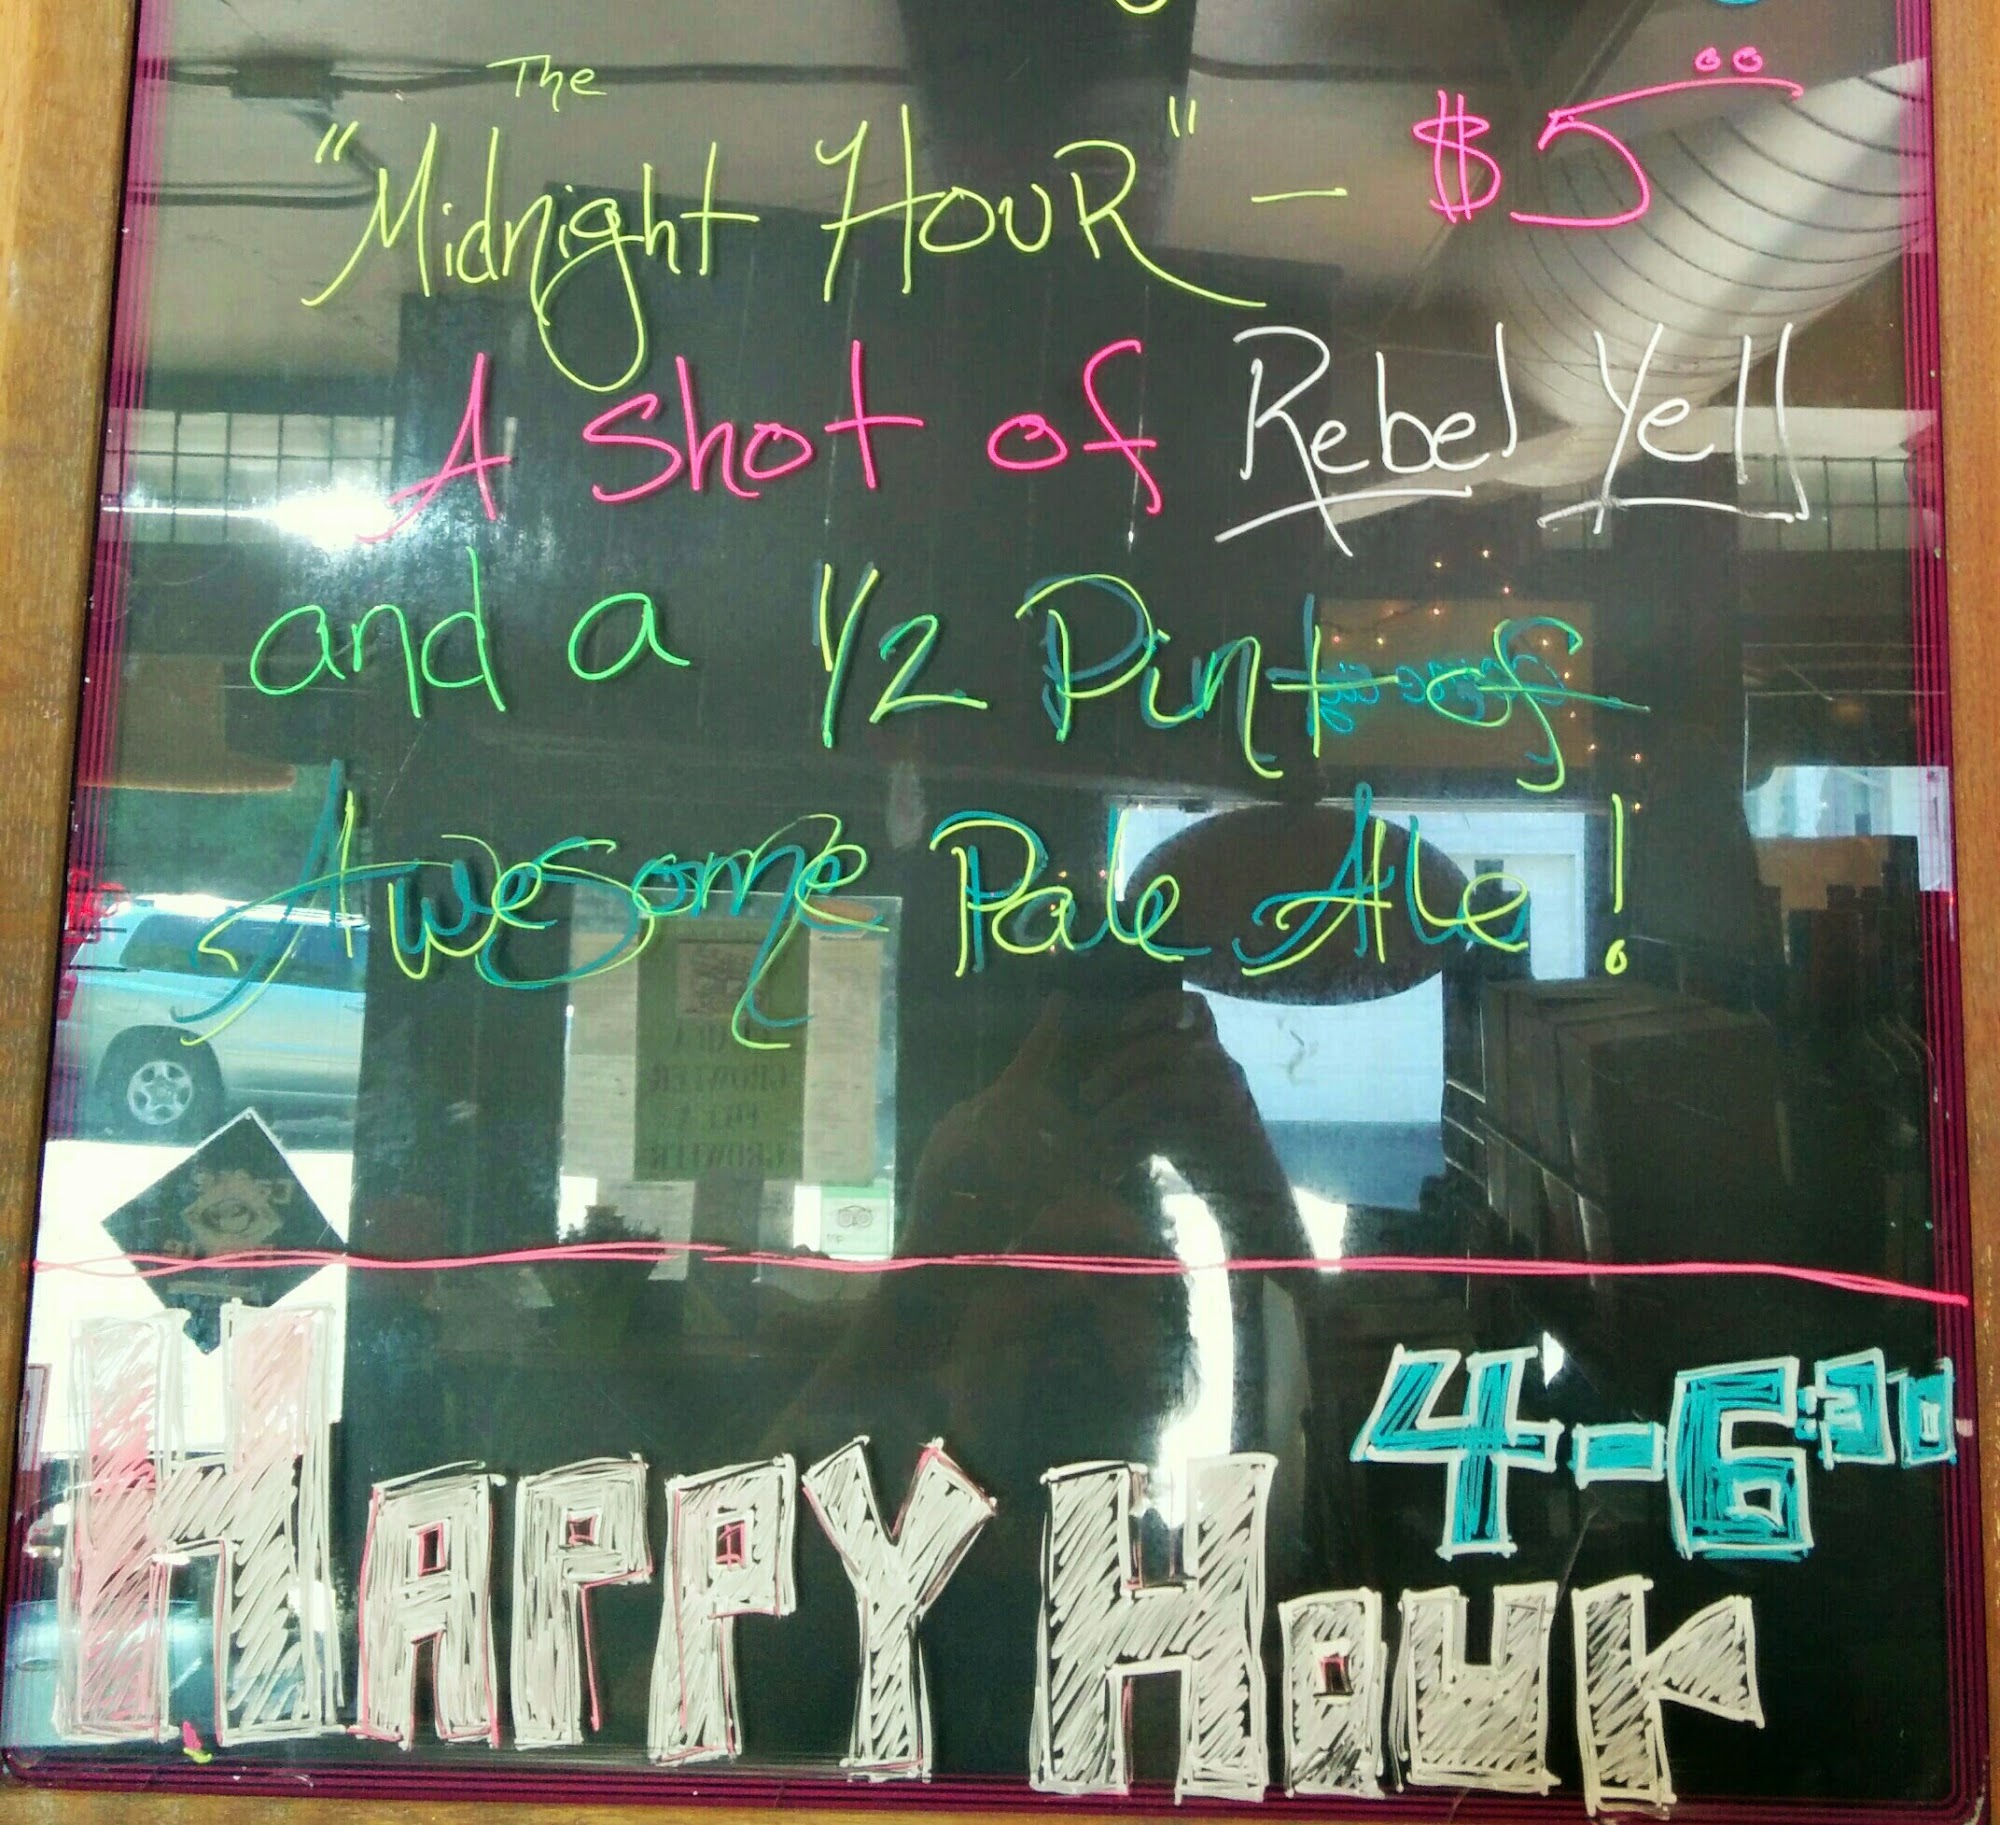 The
"Midnight Hour" - $5
A Shot of Rebel Yell
and a 1/2 Pint of
Awesome Pale Ale!
4-6:30
Happy Hour